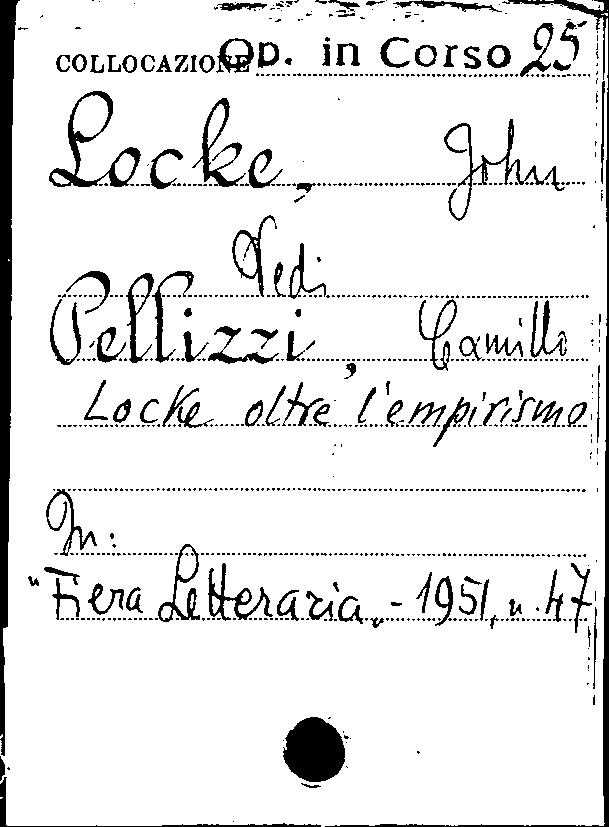 COLLOCAZIONE Op. in Corso 25
Locke, John
Vedi
Pellizzi, Camillo
Locke oltre l'empirismo
In:
"Fiera Letteraria„ - 1951, n. 47